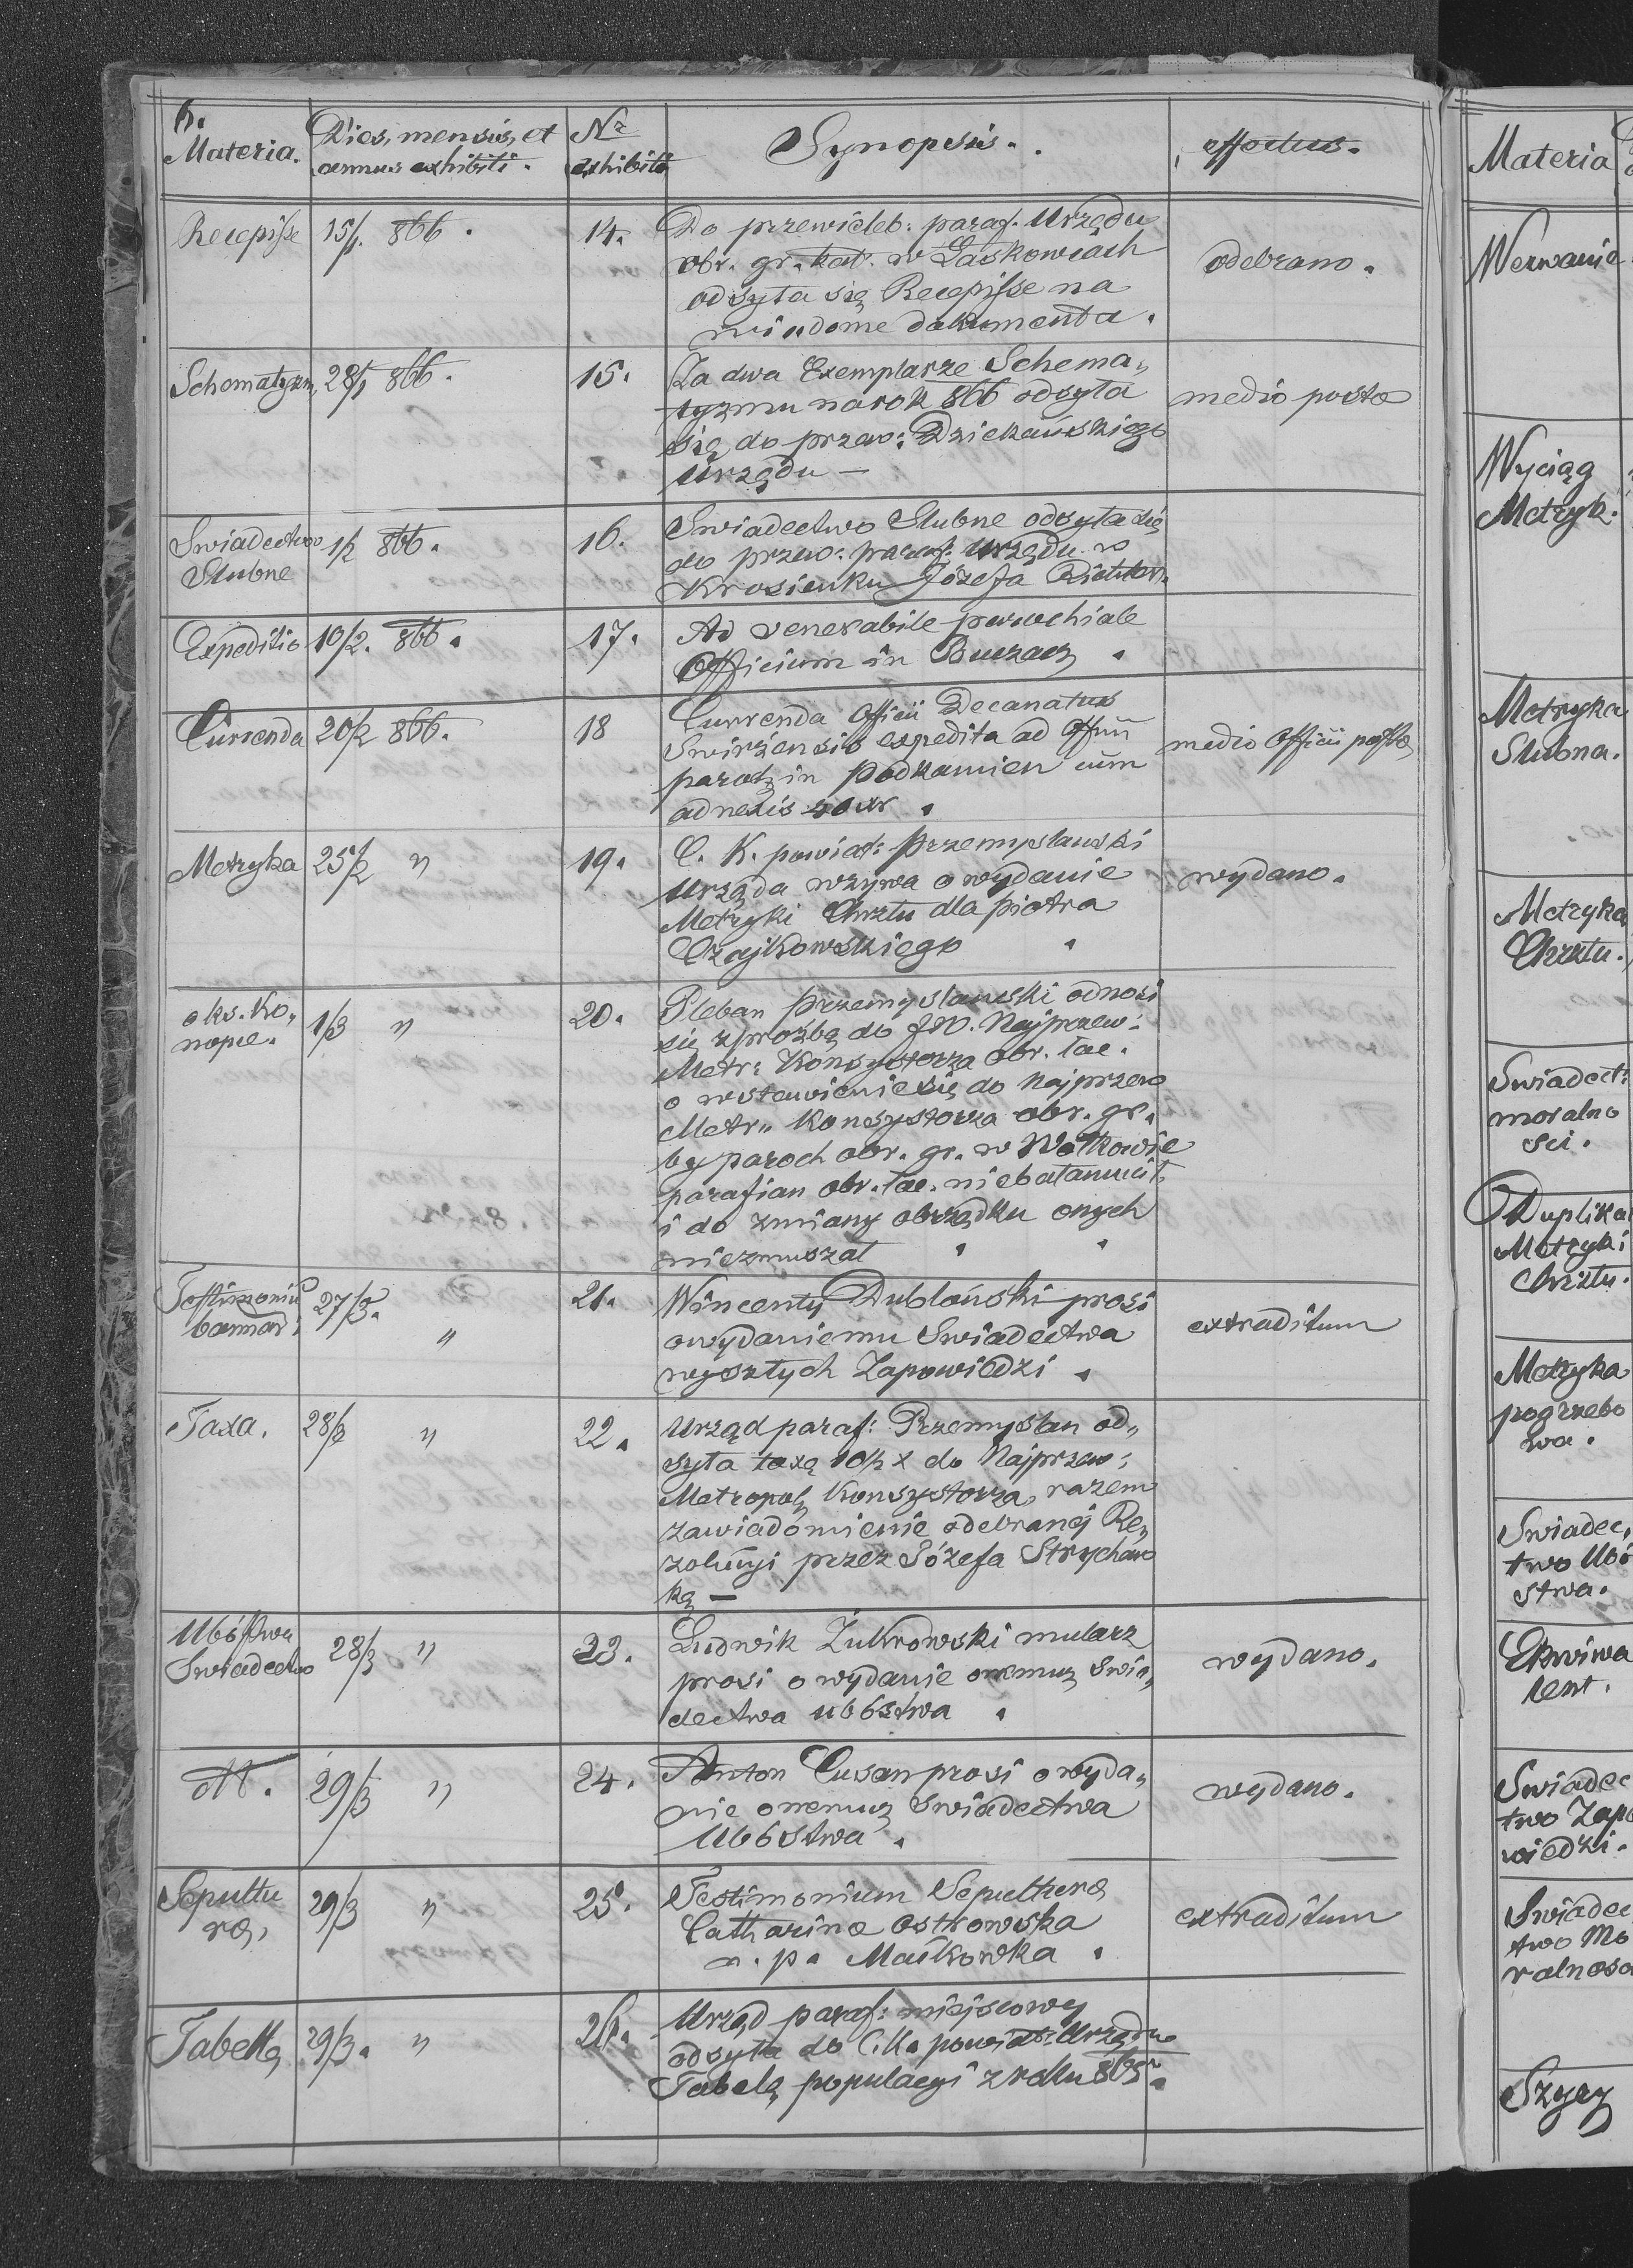 6.
Materia. Dies, mensis, et annus exhibiti. Nr exhibiti Synopsis. effectus.
Recepisse 15/1. 866. 14. Do przewieleb: paraf. Urzędu
obr. gr. kat. w Laskowcach
odsyła się Recepisse na
wiadome dokumenta.
odebrano.
Schematyzm, 28/1 866. 15. Za dwa Exemplarze Schema„
tyzmu na rok 866 odsyła
się do przew: Dziekańskiego
Urzędu —
medio posta
Swiadectwo
Slubne
1/2 866. 16. Swiadectwo Slubne odsyła się
do przew: paraf: Urzędu w
Krosienku Józefa
Expeditio 10/2. 866. 17. Ad venerabile parochiale
Officium in Buczacz.
Currenda 20/2 866. 18 Currenda Officii Decanatus
Swirżensis expedita ad Offun
paroch in Podkamien cum
adnexis
medio Officii postæ
Metryka 25/2 „ 19. C. K. powiat: Przemyslański
Urząd wzywa o wydanie
Metryki Chrztu dla Piotra
Czajkowskiego.
wydano.
o ks. Ko„
nopce.
1/3 „ 20. Pleban Przemyslański odnosi
się z prożbą do JW. Najprzew:
Metr: Konsystorza obr. łac.
o wstawienie się do Najprzew
Metr„ Konsystorza obr. gr.
by paroch obr. gr. w Wołkowie
parafian obr. łac. niebałamucił
i do zmiany obrządku onych
niezmuszał
Testimoniū
bannor:
27/3. „ 21. Wincenty Dublański prosi
o wydaniemu Swiadectwa
wyszłych Zapowiedzi.
extraditum
Taxa. 28/3 „ 22. Urząd paraf: Przemyslan od„
syła taxę 10½ x do Najprzew:
Metropol, Konsystorza, razem
zawiadomienie odebranej Re„
zolucyi przez Józefa Strychar
ką —
Ubóstwa
Swiadectwo
28/3 „ 23. Ludwik Żukrowski mularz
prosi o wydanie onemuz Swia„
dectwa ubóstwa.
wydano.
dtt. 29/3 „ 24. Anton Cusan prosi o wyda„
nie onemuz Swiadectwa
Ubóstwa.
wydano.
Sepultu
ræ,
29/3 „ 25. Testimonium Sepulturæ
Catharinæ Ostrowska
a. p. Maćkowka.
extraditum
Tabella, 29/3. „ 26. Urząd paraf: miejscowy
odsyła do C.K. powiat: Urzędu
Tabelę populacyi z roku 865.
Materia
Wezwanie
Wyciąg
Metryk.
Metryka
Slubna.
Metryka
Chrztu.
Swiadect:
moralno
sci.
Duplikat
Metryki
Chrztu.
Metryka
pogrzebo
wa.
Swiadec„
two Ubó
stwa.
Ekwiwa
lent.
Swiadec
two Zapo
wiedzi.
Swiadec
two Mo
ralnosc
Szycy